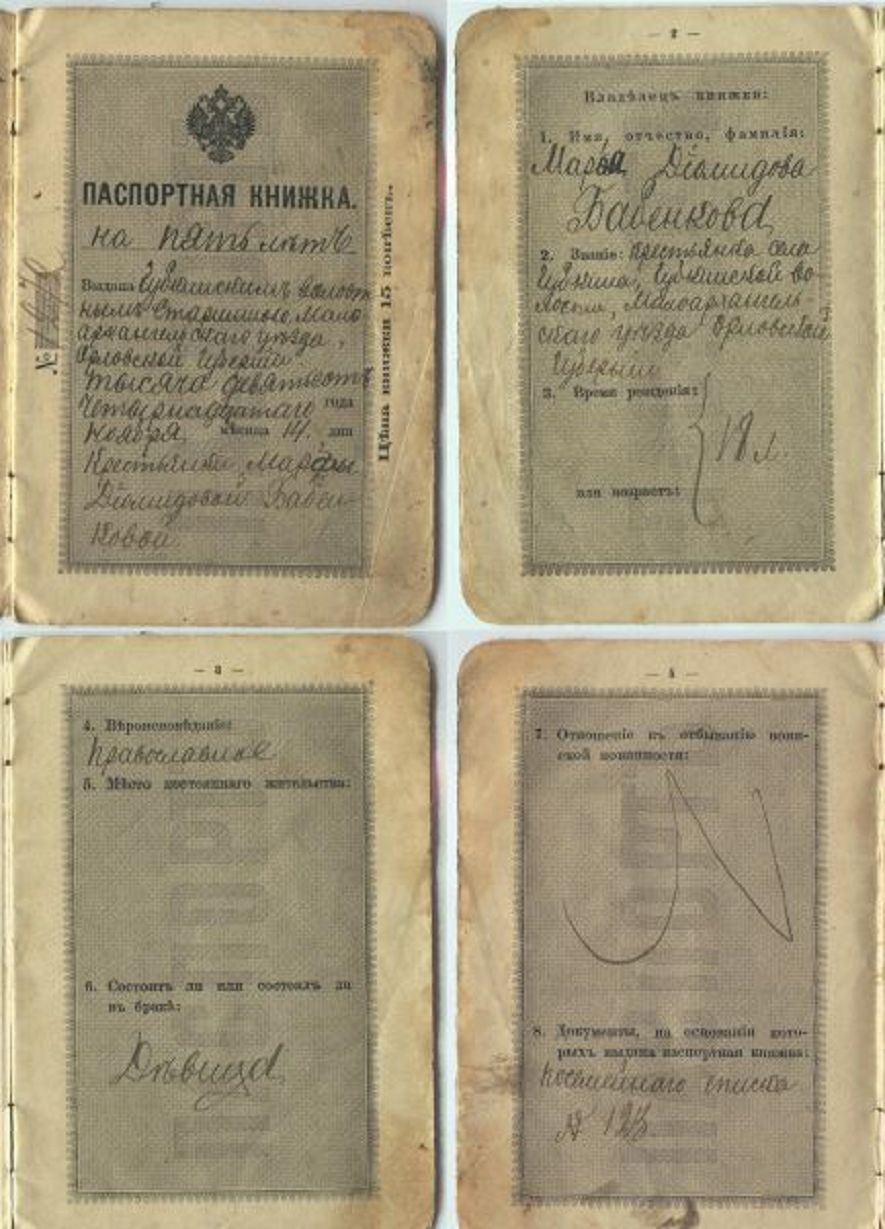 ПАСПОРТНАЯ КНИЖКА.
на пять лѣтъ
Выдана Губкинскимъ Волост
нымъ Старшиною, Мало
архангельскаго уѣзда,
Орловской Губерніи
тысяча девятьсотъ
Четырнадцатаго года
Ноября мѣсяца 14. дня
Крестьянки Марфы
Діомидовой Бабен-
ковой
№
Цѣна книжки 15 копѣекъ.
— 2 —
Владѣлецъ книжки:
1. Имя, отчество, фамилія:
Марфа Діомидова
Бабенкова
2. Званіе: крестьянка села
Губкина, Губкинской во-
лости, Малоархангель-
скаго уѣзда Орловской
Губерніи
3. Время рожденія:
18 л.
или возрастъ:
— 3 —
4. Вѣроисповѣданіе:
Православное
5. Мѣсто постояннаго жительства:
6. Состоитъ ли или состоялъ ли
въ бракѣ:
Дѣвица
— 4 —
7. Отношеніе къ отбыванію воин-
ской повинности:
8. Документы, на основаніи кото-
рыхъ выдана паспортная книжка:
посемейнаго списка
№